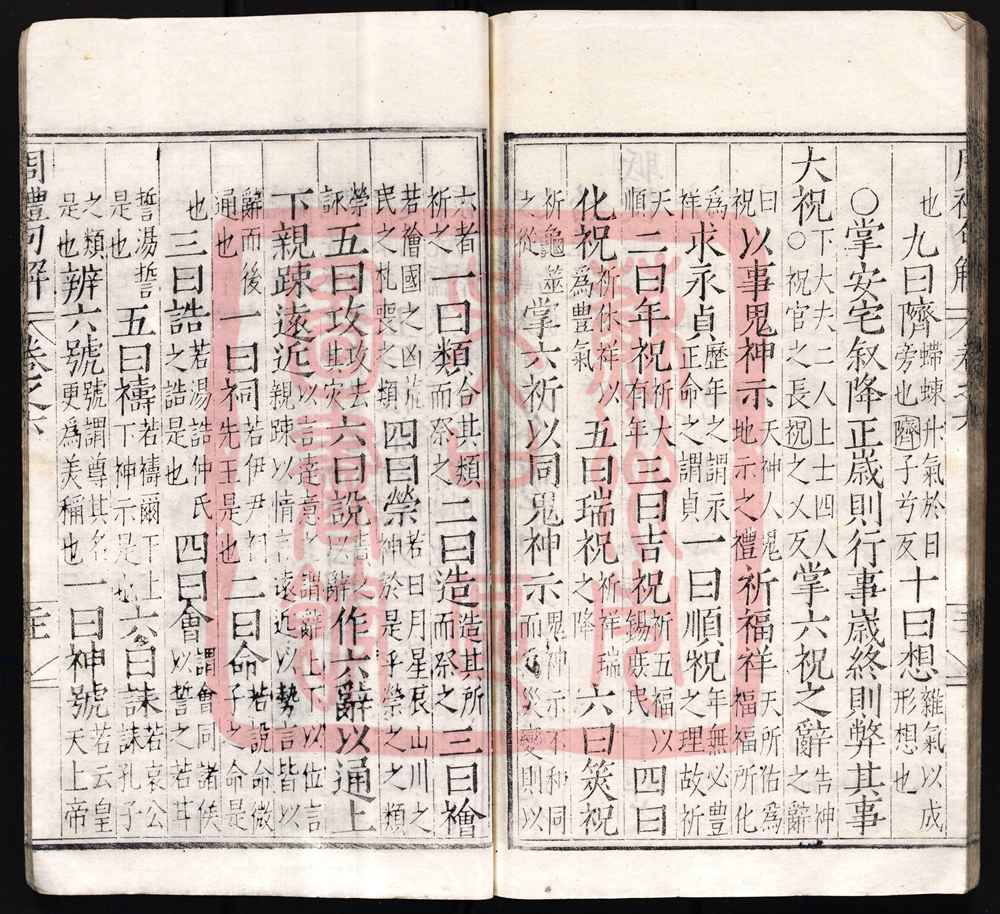 也九曰隮蝃蝀升氣於日旁也隮子兮反十曰想雜氣以成形想也
○掌安宅叙降正歲則行事歲終則弊其事
大祝下大夫二人上士四人○祝官之長祝之又反掌六祝之辭告神之辭
曰祝以事鬼神示天神人鬼地示之禮祈福祥天所佑為福福所化
為祥求永貞歷年之謂永正命之謂貞一曰順祝年無必豐之理故祈
天順二曰年祝祈大有年三曰吉祝祈五福以錫庶民四曰
化祝祈休祥以為豐氣五曰瑞祝祈祥瑞之降六曰筴祝
祈龜筮之從掌六祈以同鬼神示鬼神示不和同而為災變則以
六者祈之一曰類合其類而祭之二曰造造其所而祭之三曰禬
若禬國之凶荒民之札喪之類四曰禜若日月星辰山川之神於是乎禜之之類
禜詠五曰攻攻去其灾六曰說以辭作六辭以通上
下親疎遠近以言達意之謂辭上下以位言親疎以情言遠近以勢言皆以
辭而後通也一曰祠若伊尹祠先王是也二曰命若說命微子之命是
也三曰誥若湯誥仲虺之誥是也四曰會謂會同諸侯以誓之若甘
誓湯誓是也五曰禱若禱爾于上下神示是也六曰誄若哀公誄孔子
之類是也辨六號號謂尊其名更為美稱也一曰神號若云皇天上帝
周禮句解卷之六